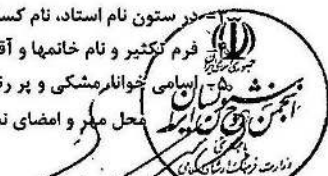 ۳- در ستون نام استاد، نام کس
فرم تکثیر و نام خانمها و آق
۵- اسامی خوانا، مشکی و پر رن
محل مهر و امضای ن
انجمن خوشنویسان ایران
وزارت فرهنگ و ارشاد اسلامی